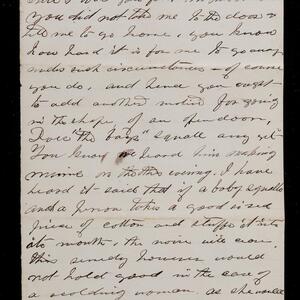 you did not take me to the door &
tell me to go home, you know
how hard it is for me to go away
under such circumstances – of course
you do, and hence you ought
to add another motive for going
in the shape of an open door,
Does "the baby" squall any yet
You know we heard him making
mime on the other evening. I have
heard it said that if a baby squalls
and a person takes a good sized
piece of cotton and stuffs it into
its mouth, the noise will cease.
this remedy however would
not hold good in the case of
a scolding woman, as she would